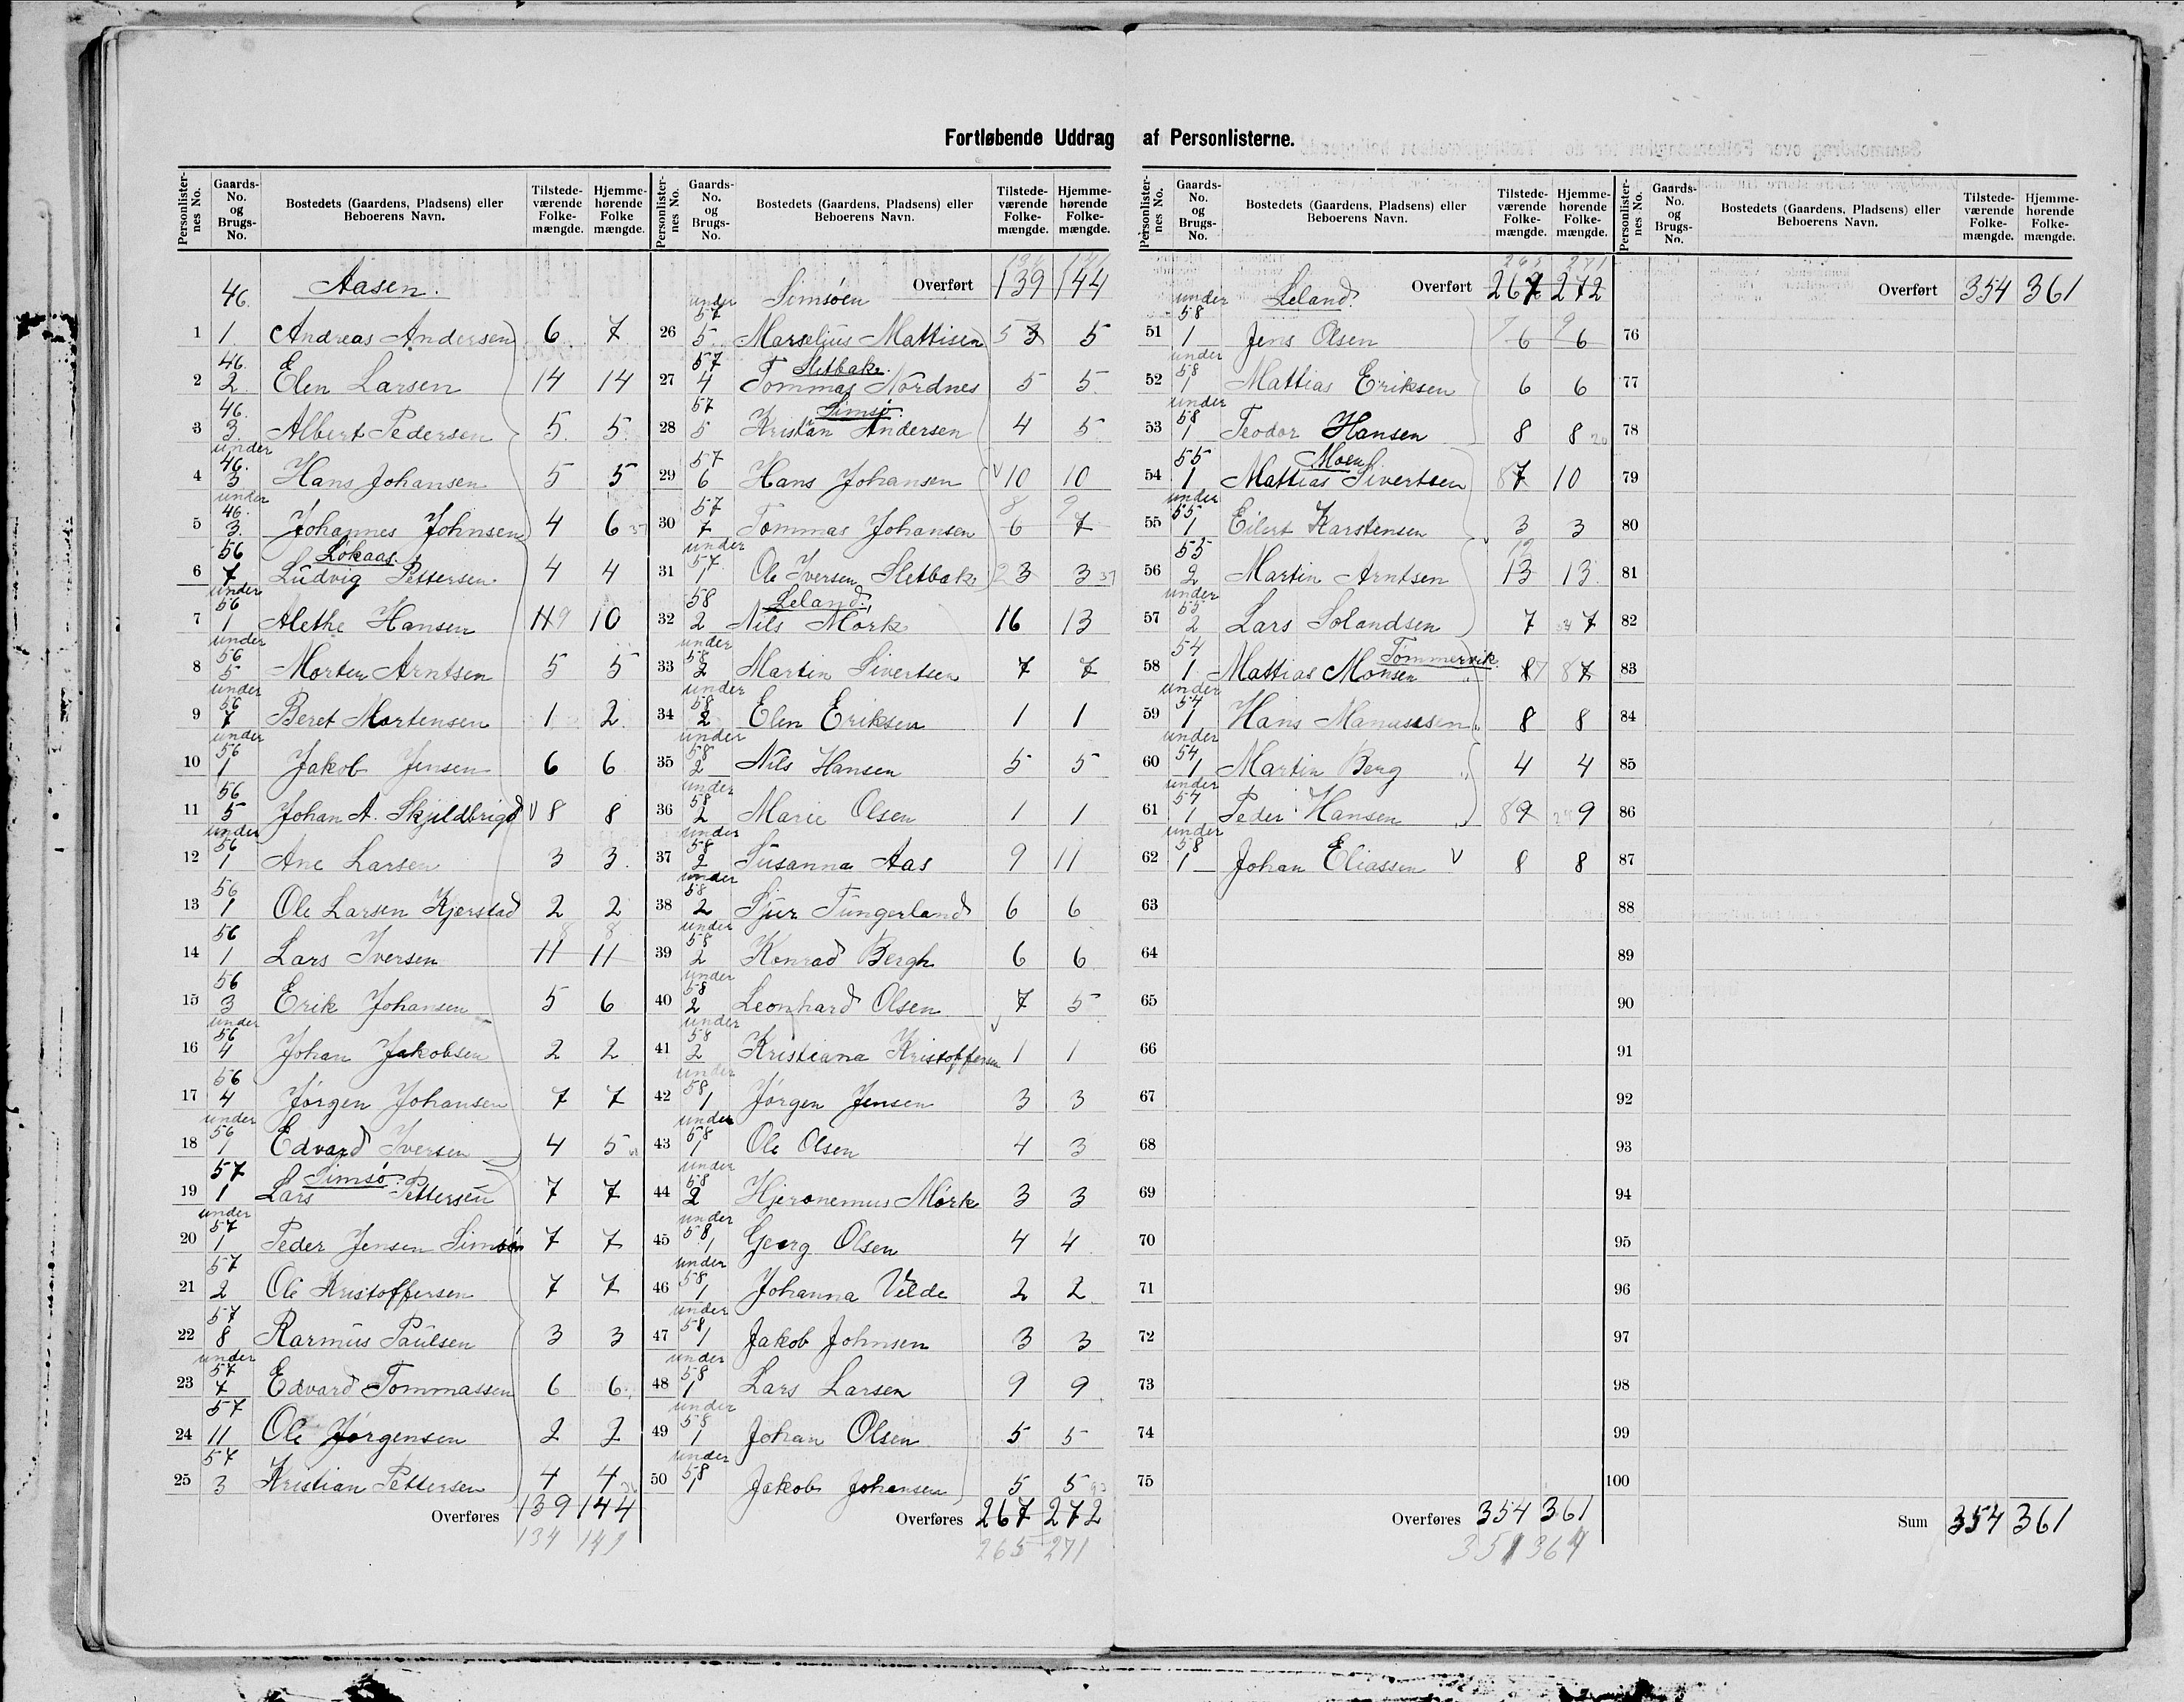 Fortløbende Uddrag af Personlisterne.
Personlisternes No. Gaards-No. og Brugs-No. Bostedets (Gaardens, Pladsens) eller Beboerens Navn. Tilstedeværende Folkemængde. Hjemmehørende Folkemængde.
46. Aasen.
1 1 Andreas Andersen 6 7
2 46. 2 Elen Larsen 14 14
3 46. 3. Albert Pedersen 5. 5.
4 under 46. 3 Hans Johansen 5 5
5 under 46. 3. Johannes Johnsen 4 6 37
Løkaas.
6 56 7 Ludvig Pettersen. 4 4
7 under 56 1 Alethe Hansen 11 9 10
8 under 56 5 Morten Arntsen 5 5
9 under 56 7 Beret Mortensen 1 2
10 under 56 1 Jakob Jensen 6 6
11 56 5 Johan A. Skjeldbrigd V 8 8
12 under 56 1 Ane Larsen 3 3.
13 56 1 Ole Larsen Kjerstad 2 2
14 56 1 Lars Iversen 11 11 8 8
15 56 3 Erik Johansen 5 6
16 under 56 4 Johan Jakobsen 2 2
17 56 4 Jørgen Johansen 7 7
18 under 56 1 Edvard Iversen 4 5
Simsø.
19 57 1 Lars Pettersen 7 7
20 under 57 1 Peder Jensen Simsøn 7 7
21 57 2 Ole Kristoffersen 7 7
22 57 8 Rasmus Paulsen 3 3
23 under 57 7 Edvard Tommassen 6 6
24 57 11 Ole Jørgensen 2 2
25 57 3 Kristian Pettersen 4 4
Overføres 139 144
134 141
Simsøen Overført 139 144
134 141
26 under 57 5 Marselius Mattisen 5 3 5
Sletbak.
27 57 4 Tommas Nordnes 5 5
Simsø.
28 57 5 Kristian Andersen 4 5
29 57 6 Hans Johansen V 10 10
30 57 7 Tommas Johansen 6 7 8 9
31 under 57 1 Ole Iversen Sletbak 2 3 3 37
Leland.
32 58 2 Nils Mørk 16 13
33 under 58 2 Martin Sivertsen 7 7
34 under 58 2 Elen Eriksen 1 1
35 under 58 2 Nils Hansen 5 5
36 under 58 2 Marie Olsen 1 1
37 under 58 2 Susanna Aas 9 11
38 under 58 2 Sjur Tungerland 6 6
39 under 58 2 Konrad Bergh 6 6
40 under 58 2 Leonhard Olsen 7 5
41 under 58 2 Kristiana Kristoffersen 1 1
42 under 58 1 Jørgen Jensen 3 3
43 under 58 1 Ole Olsen 4 3
44 under 58 2 Hjeronemus Mørk 3 3
45 under 58 1 Georg Olsen 4 4
46 under 58 1 Johanna Velde 2 2
47 under 58 1 Jakob Johnsen 3 3
48 under 58 1 Lars Larsen 9 9
49 under 58 1 Johan Olsen 5 5
50 under 58 1 Jakob Johansen 5 5
Overføres 267 272
265 271
Leland. Overført 267 272
265 271
51 under 58 1 Jens Olsen 6 6 7 9
52 under 58 1 Mattias Eriksen 6 6
53 under 58 1 Teodor Hansen 8 8 20
Moen
54 55 1 Mattias Sivertsen 8 7 10
55 under 55 1 Eilert Karstensen 3 3
56 55 2 Martin Arntsen 13 13. 12
57 under 55 2 Lars Solandsen 7 7
Tømmervik.
58 54 1 Mattias Monsen 8 7 8 7
59 under 54 1 Hans Manussen 8 8
60 under 54 1 Martin Berg 4 4
61 under 54 1 Peder Hansen 8 9 9
62 under 58 1 Johan Eliassen V 8 8
63
64
65
66
67
68
69
70
71
72
73
74
75
Overføres 354 361
351 364
Overført 354 361
76
77
78
79
80
81
82
83
84
85
86
87
88
89
90
91
92
93
94
95
96
97
98
99
100
Sum 354 361